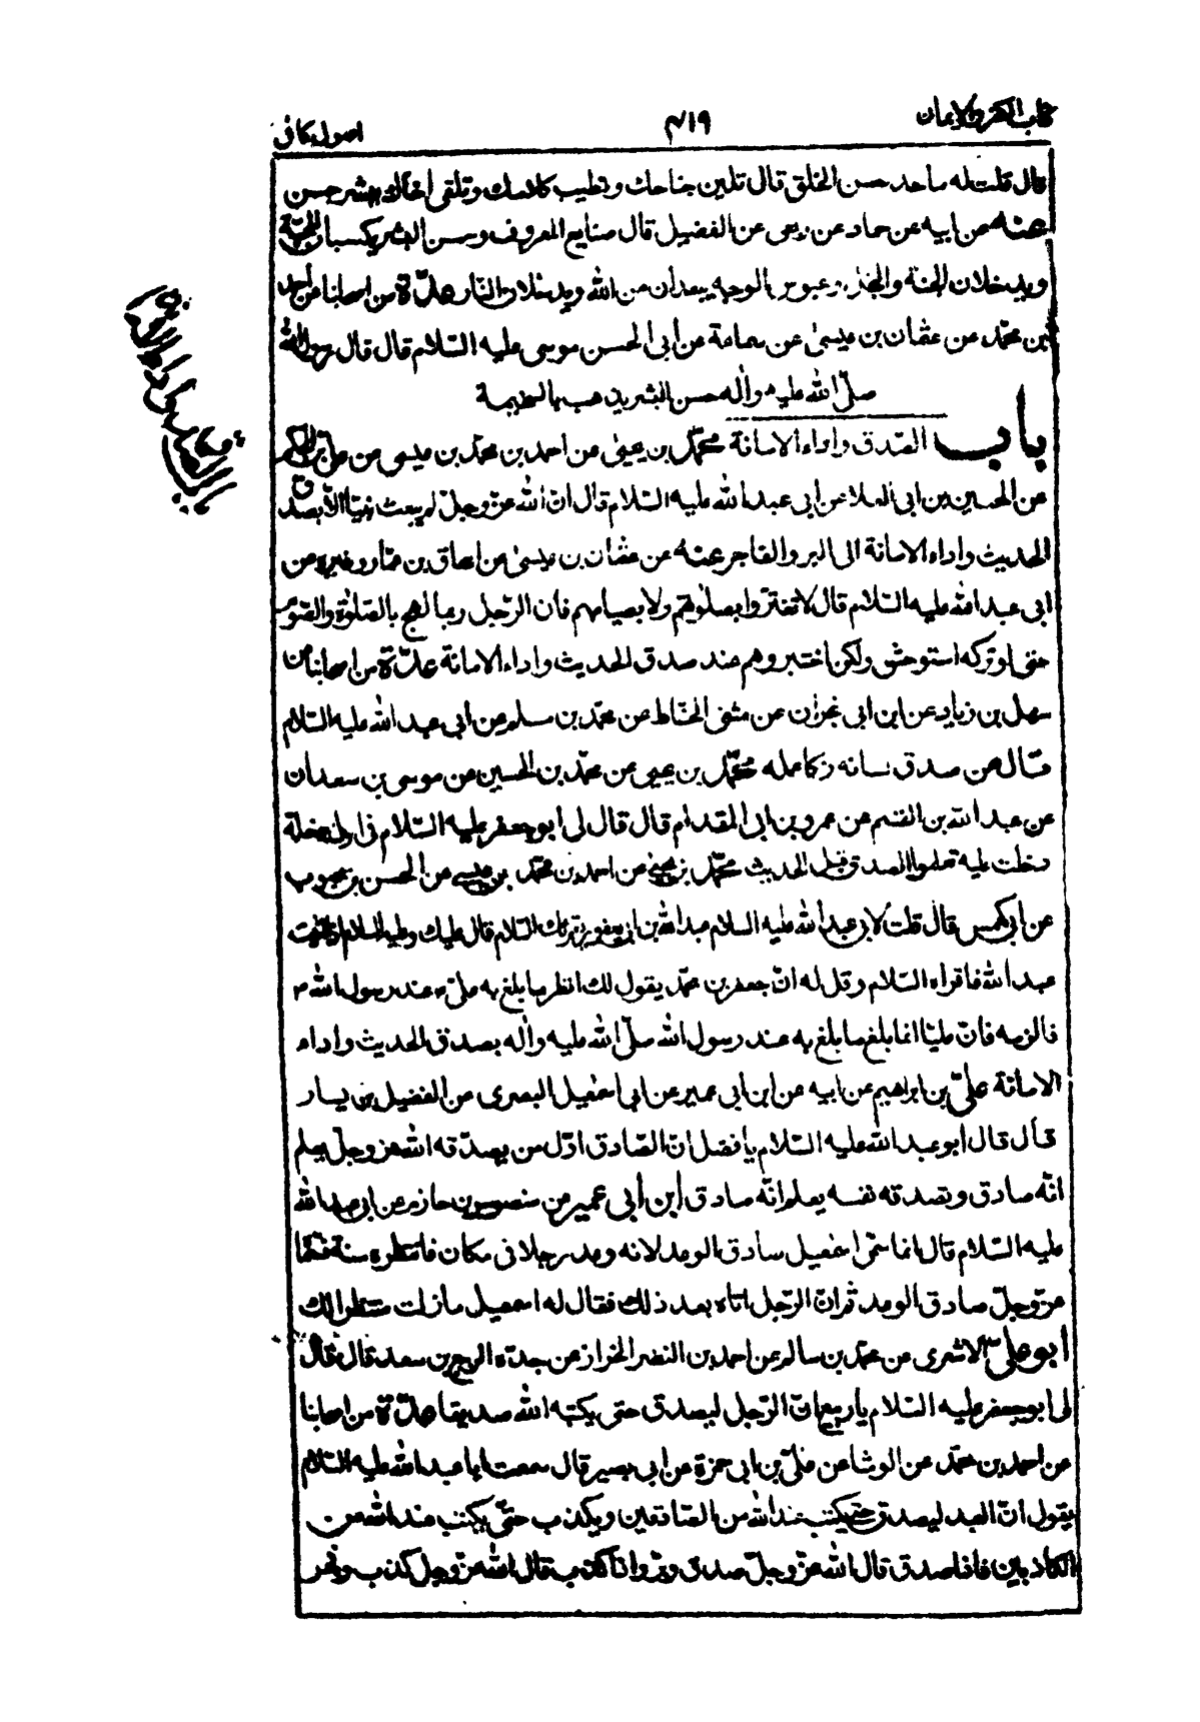 كتاب الكفر والايمان ٤١٩ اصول كافى
قال قلت له ما حد حسن الخلق قال تلين جناحك وتطيب كلامك وتلقى اخاك ببشر حسن
عنه عن ابيه عن حماد عن ربعى عن الفضيل قال صنايع المعروف وحسن البشر يكسبان المحبة
ويدخلان الجنة والبخل وعبوس الوجه يبعدان من الله ويدخلان النار عدّة من اصحابنا عن احمد
بن محمّد عن عثمان بن عيسىٰ عن سماعة عن ابى الحسن موسى عليه السّلام قال قال رسول الله
صلّى الله عليه وأله حسن البشر يذهب بالسخيمة
باب الصّدق واداء الامانة محمّد بن يحيىٰ عن احمد بن محمّد بن عيسى عن علىّ بن الحكم
عن الحسين بن ابى العلا عن ابى عبد الله عليه السّلام قال انّ الله عزّ وجلّ لم يبعث نبيّا الّا بصدق
الحديث واداء الامانة الى البر والفاجر عنه عن عثمان بن عيسىٰ عن اسحاق بن عمّار وغيره عن
ابى عبد الله عليه السّلام قال لا تغترّوا بصلوٰتهم ولا بصيامهم فان الرّجل ربما لهج بالصّلوٰة والصّوم
حتى لو تركه استوحش ولكن اختبروهم عند صدق الحديث واداء الامانة عدّة من اصحابنا عن
سهل بن زياد عن ابن ابى نجران عن مثنى الحنّاط عن محمّد بن مسلم عن ابى عبد الله عليه السّلام
قال من صدق لسانه زكا عمله محمّد بن يحيى عن محمّد بن الحسين عن موسى بن سعدان
عن عبد الله بن القسم عن عمرو بن ابى المقدام قال قال لى ابو جعفر عليه السّلام فى اول دخلة
دخلت عليه تعلموا الصدق قبل الحديث محمّد بن يحيىٰ عن احمد بن محمّد بن عيسى عن الحسن بن محبوب
عن ابى كهمس قال قلت لابى عبد الله عليه السلام عبد الله بن ابى يعفور يقرئك السّلام قال عليك وعليه السلام اذا اتيت
عبد الله فاقراه السّلام وقل له انّ جعفر بن محمّد يقول لك انظر ما بلغ به علىّ عند رسول الله ص
فالزمه فانّ عليّا انما بلغ ما بلغ به عند رسول الله صلّى الله عليه وأله بصدق الحديث واداء
الامانة علىّ بن ابراهيم عن ابيه عن ابن ابى عمير عن ابى اسمٰعيل البصرى عن الفضيل بن يسار
قال قال ابو عبد الله عليه السّلام يا فضل انّ الصّادق اوّل من يصدّقه الله عزّ وجلّ يعلم
انّه صادق وتصدقه نفسه يعلم انّه صادق ابن أبى عمير عن منصور بن حازم عن ابى عبد الله
عليه السّلام قال انما سمّى اسمٰعيل صادق الوعد لانه وعد رجلا فى مكان فانتظره سنة فسمّاه
عزّ وجلّ صادق الوعد ثم انّ الرّجل اتاه بعد ذلك فقال له اسمعيل ما زلت منتظرا لك
ابو علىّ الاشعرى عن محمّد بن سالم عن احمد بن النضر الخزاز عن جدّه الربيع بن سعد قال قال
لى ابو جعفر عليه السّلام يا ربيع انّ الرّجل ليصدق حتى يكتبه الله صديقا عدّة من اصحابنا
عن احمد بن محمّد عن الوشا عن علىّ بن ابى حمزة عن ابى بصير قال سمعت ابا عبد الله عليه السّلام
يقول انّ العبد ليصدق حتى يكتب عند الله من الصّادقين ويكذب حتّى يكتب عند الله من
الكاذبين فاذا صدق قال الله عزّ وجلّ صدق وبرّ واذا كذب قال الله عزّ وجل كذب وفجر
باب الصدق واداء الامانة